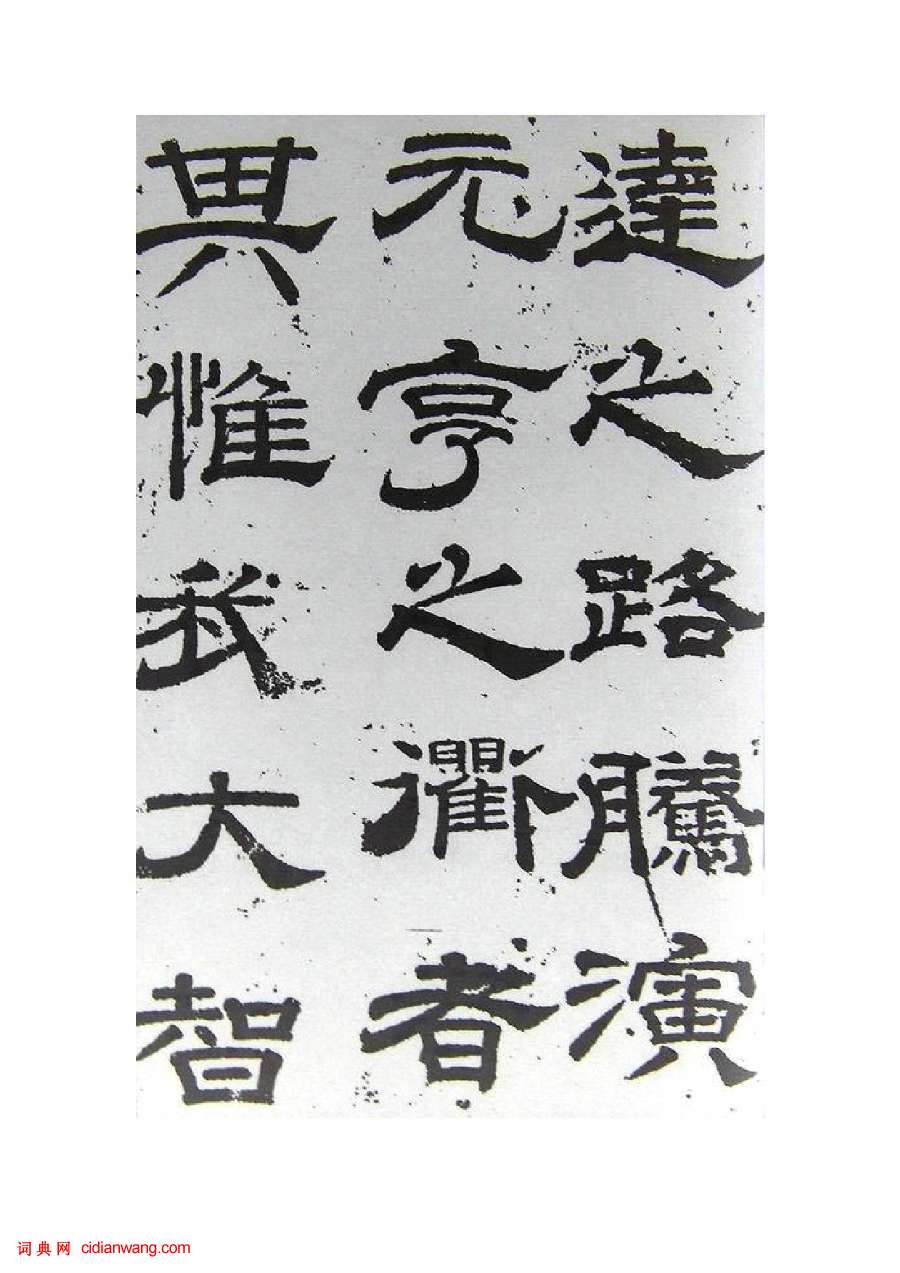 達之路騰演
元亨之衢者
其惟我大智
词典网 cidianwang.com